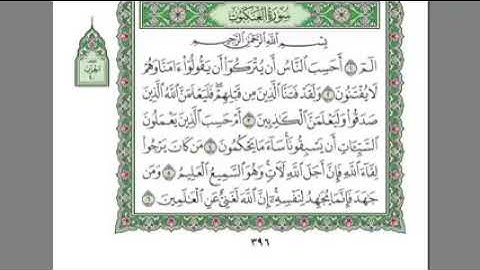 سورة العنكبوت
بسم الله الرحمن الرحيم
الٓمٓ ١ أَحَسِبَ ٱلنَّاسُ أَن يُتْرَكُوٓا۟ أَن يَقُولُوٓا۟ ءَامَنَّا وَهُمْ
لَا يُفْتَنُونَ ٢ وَلَقَدْ فَتَنَّا ٱلَّذِينَ مِن قَبْلِهِمْ فَلَيَعْلَمَنَّ ٱللَّهُ ٱلَّذِينَ
صَدَقُوا۟ وَلَيَعْلَمَنَّ ٱلْكَٰذِبِينَ ٣ أَمْ حَسِبَ ٱلَّذِينَ يَعْمَلُونَ
ٱلسَّيِّـَٔاتِ أَن يَسْبِقُونَا سَآءَ مَا يَحْكُمُونَ ٤ مَن كَانَ يَرْجُوا۟
لِقَآءَ ٱللَّهِ فَإِنَّ أَجَلَ ٱللَّهِ لَءَاتٍ وَهُوَ ٱلسَّمِيعُ ٱلْعَلِيمُ ٥ وَمَن
جَٰهَدَ فَإِنَّمَا يُجَٰهِدُ لِنَفْسِهِۦٓ إِنَّ ٱللَّهَ لَغَنِىٌّ عَنِ ٱلْعَٰلَمِينَ ٦
٣٩٦